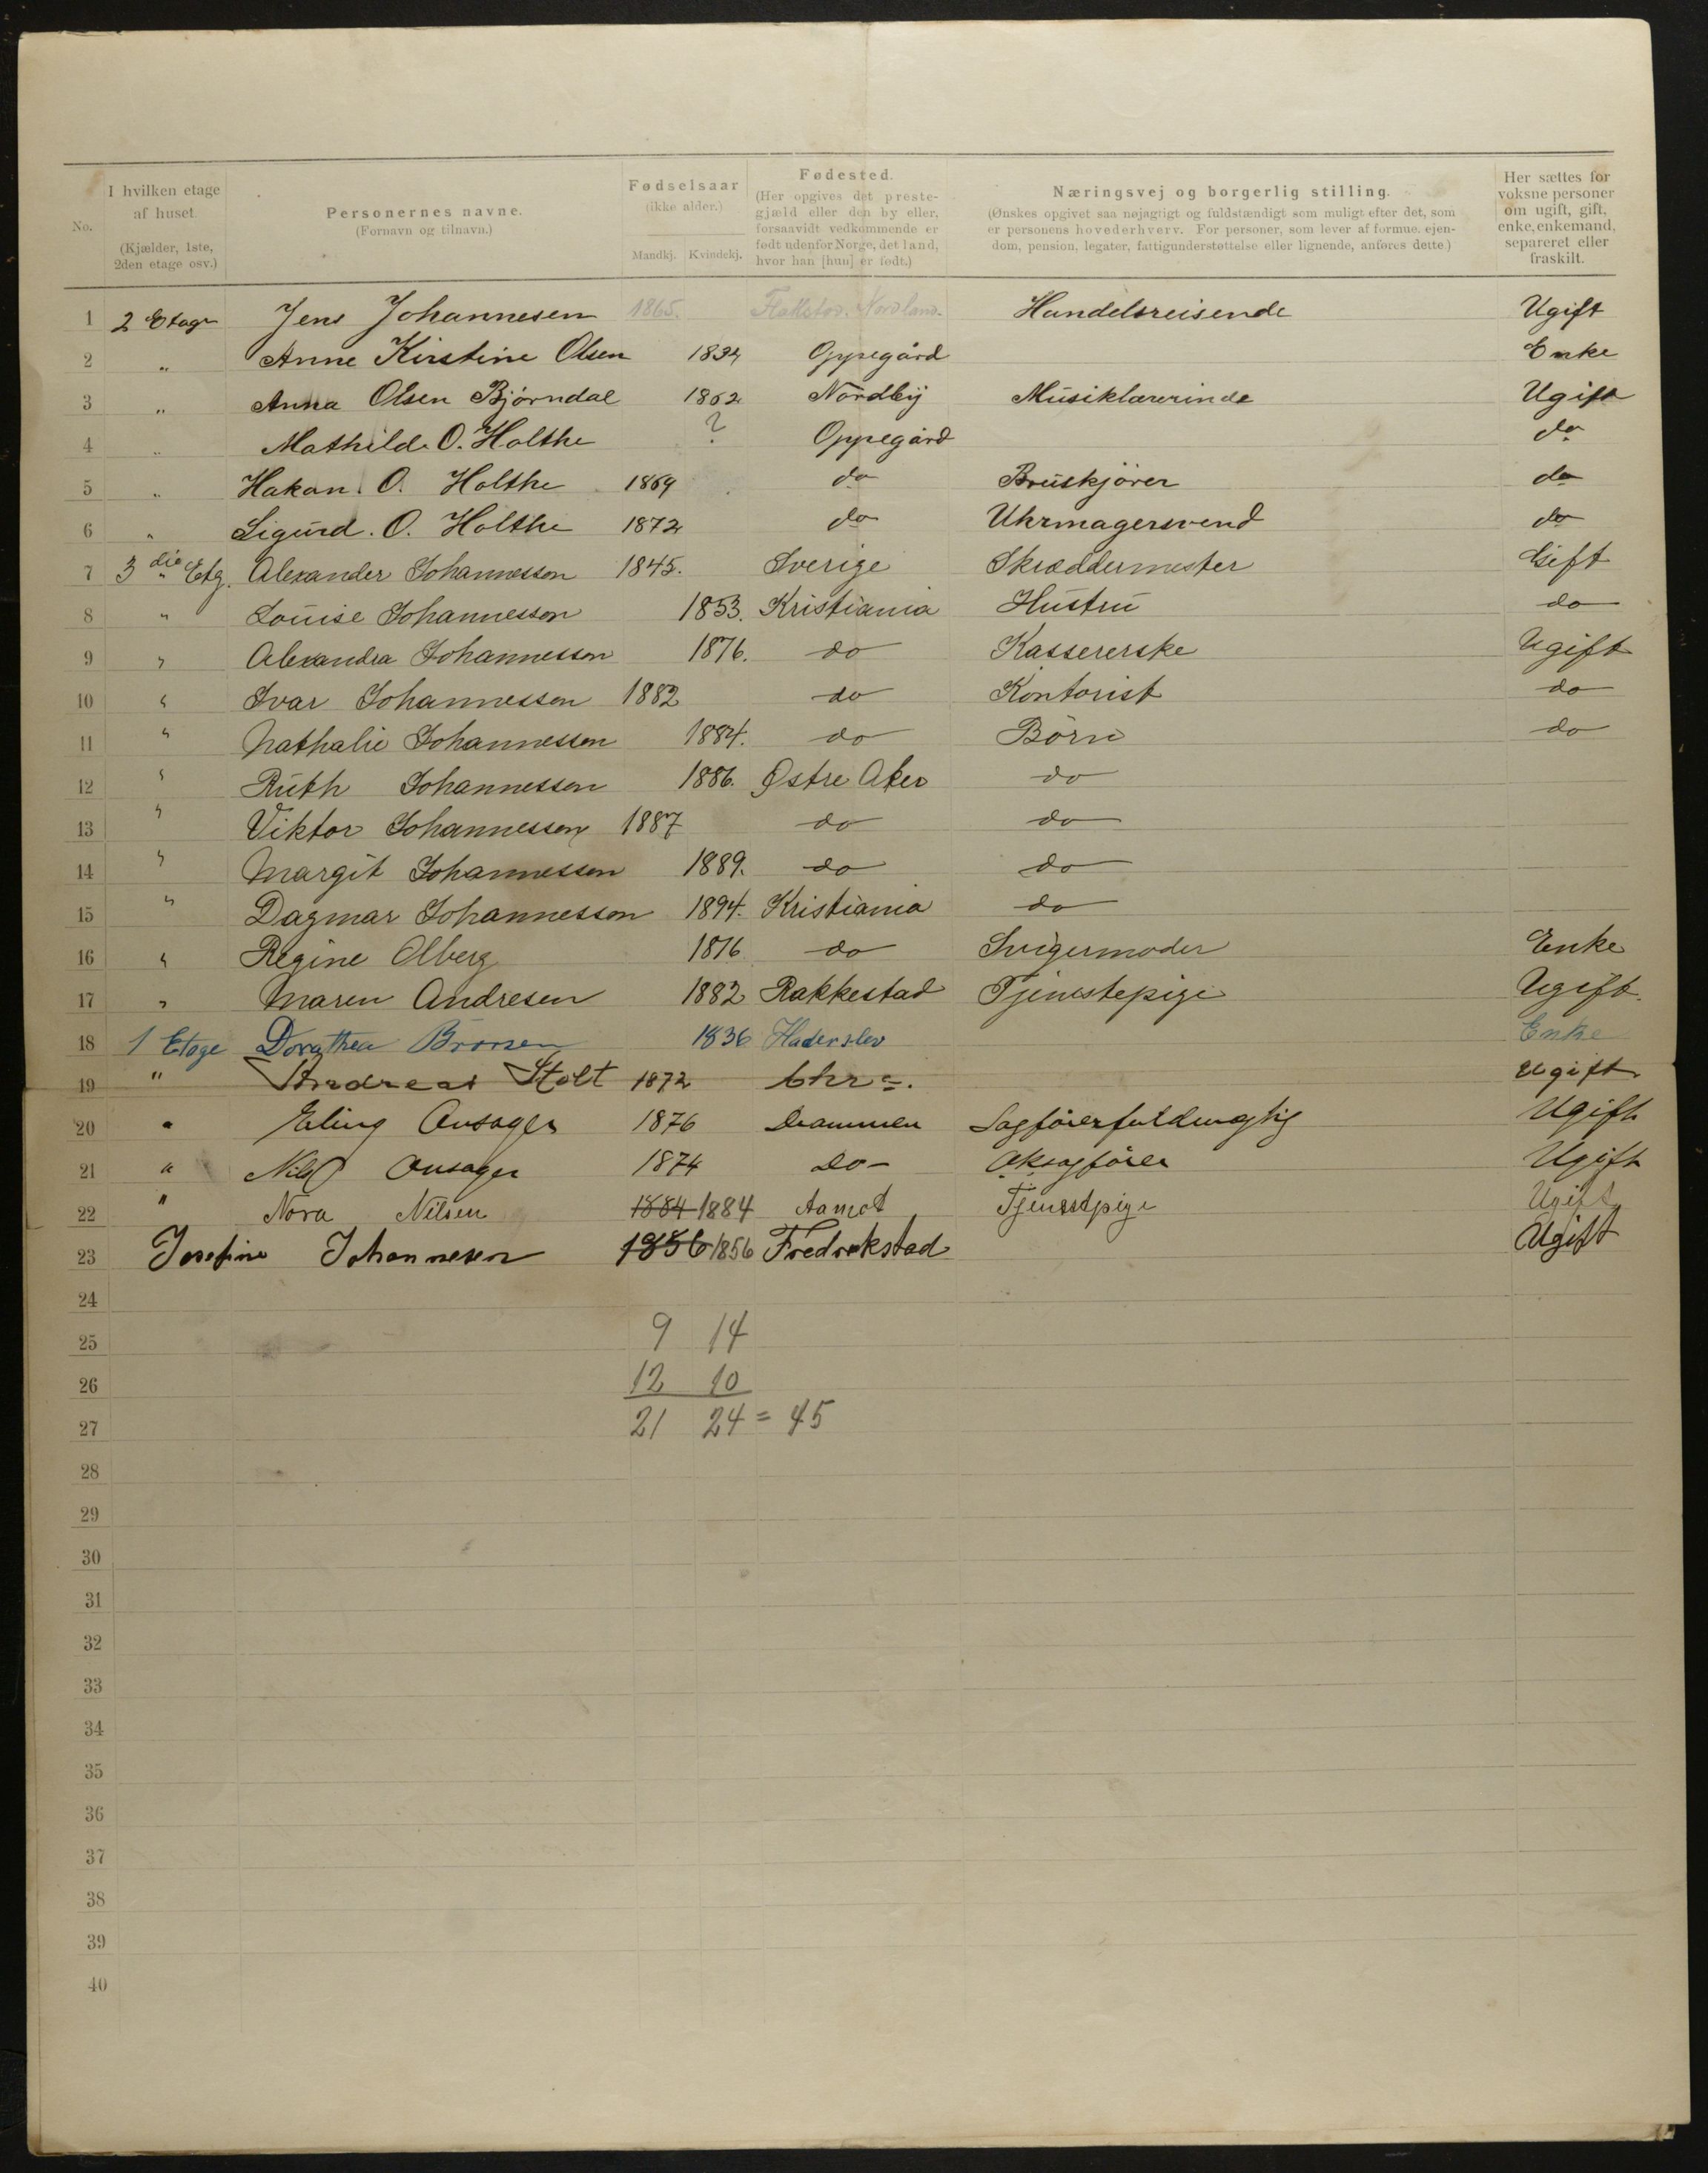 No.
I hvilken etage af huset.
(Kjælder, 1ste, 2den etage osv.)
Personernes navne.
(Fornavn og tilnavn.)
Fødselsaar
(ikke alder.)
Mandkj. Kvindekj.
Fødested.
(Her opgives det preste-
gjæld eller den by eller,
forsaavidt vedkommende er
født udenfor Norge, det land,
hvor han [hun] er født.)
Næringsvej og borgerlig stilling.
(Ønskes opgivet saa nøjagtigt og fuldstændigt som muligt efter det, som
er personens hovederhverv. For personer, som lever af formue, ejen-
dom, pension, legater, fattigunderstøttelse eller lignende, anføres dette.)
Her sættes for
voksne personer
om ugift, gift,
enke, enkemand,
separeret eller
fraskilt.
1 2 Etage Jens Johannesen 1865. Flakstad. Nordland. Handelsreisende Ugift
2 " Anne Kirstine Olsen 1834 Oppegård Enke
3 " Anna Olsen Bjørndal 1862 Nordby Musiklærerinde Ugift
4 " Mathilde O. Holthe ? Oppegård do
5 " Hakon. O. Holthe 1869 do Bruskjører do
6 " Sigurd. O. Holthe 1872 do Uhrmagersvend do
7 3die Etg. Alexander Johannesson 1845. Sverige Skræddermester Gift
8 " Louise Johannesson 1853. Kristiania Hustru do
9 " Alexandra Johannesson 1876. do Kassererske Ugift
10 " Ivar Johannesson 1882 do Kontorist do
11 " Nathalie Johannessen 1884. do Børn do
12 " Ruth Johannessen 1886. Østre Aker do
13 " Viktor Johannessen 1887 do do
14 " Margit Johannessen 1889. do do
15 " Dagmar Johannesson 1894. Kristiania do
16 " Regine Olberg 1816 do Svigermoder Enke
17 " Maren Andresen 1882 Rakkestad Tjenestepige Ugift.
18 1 Etage Dorathea Brorsen 1836 Haderslev Enke
19 " Andreas Stolt 1872 Chra. Ugift
20 " Erling Ansager 1876 Drammen Sagførerfuldmægtig Ugift
21 " Nils Ansager 1874 Do- Oksagfører Ugift
22 " Nora Nilsen 1884 1884 Aamot Tjenestpige Ugift
23 Josefine Johannesen 1856 1856 Fredrekstad Ugift
24
25 9 14
26 12 10
27 21 24 = 45
28
29
30
31
32
33
34
35
36
37
38
39
40